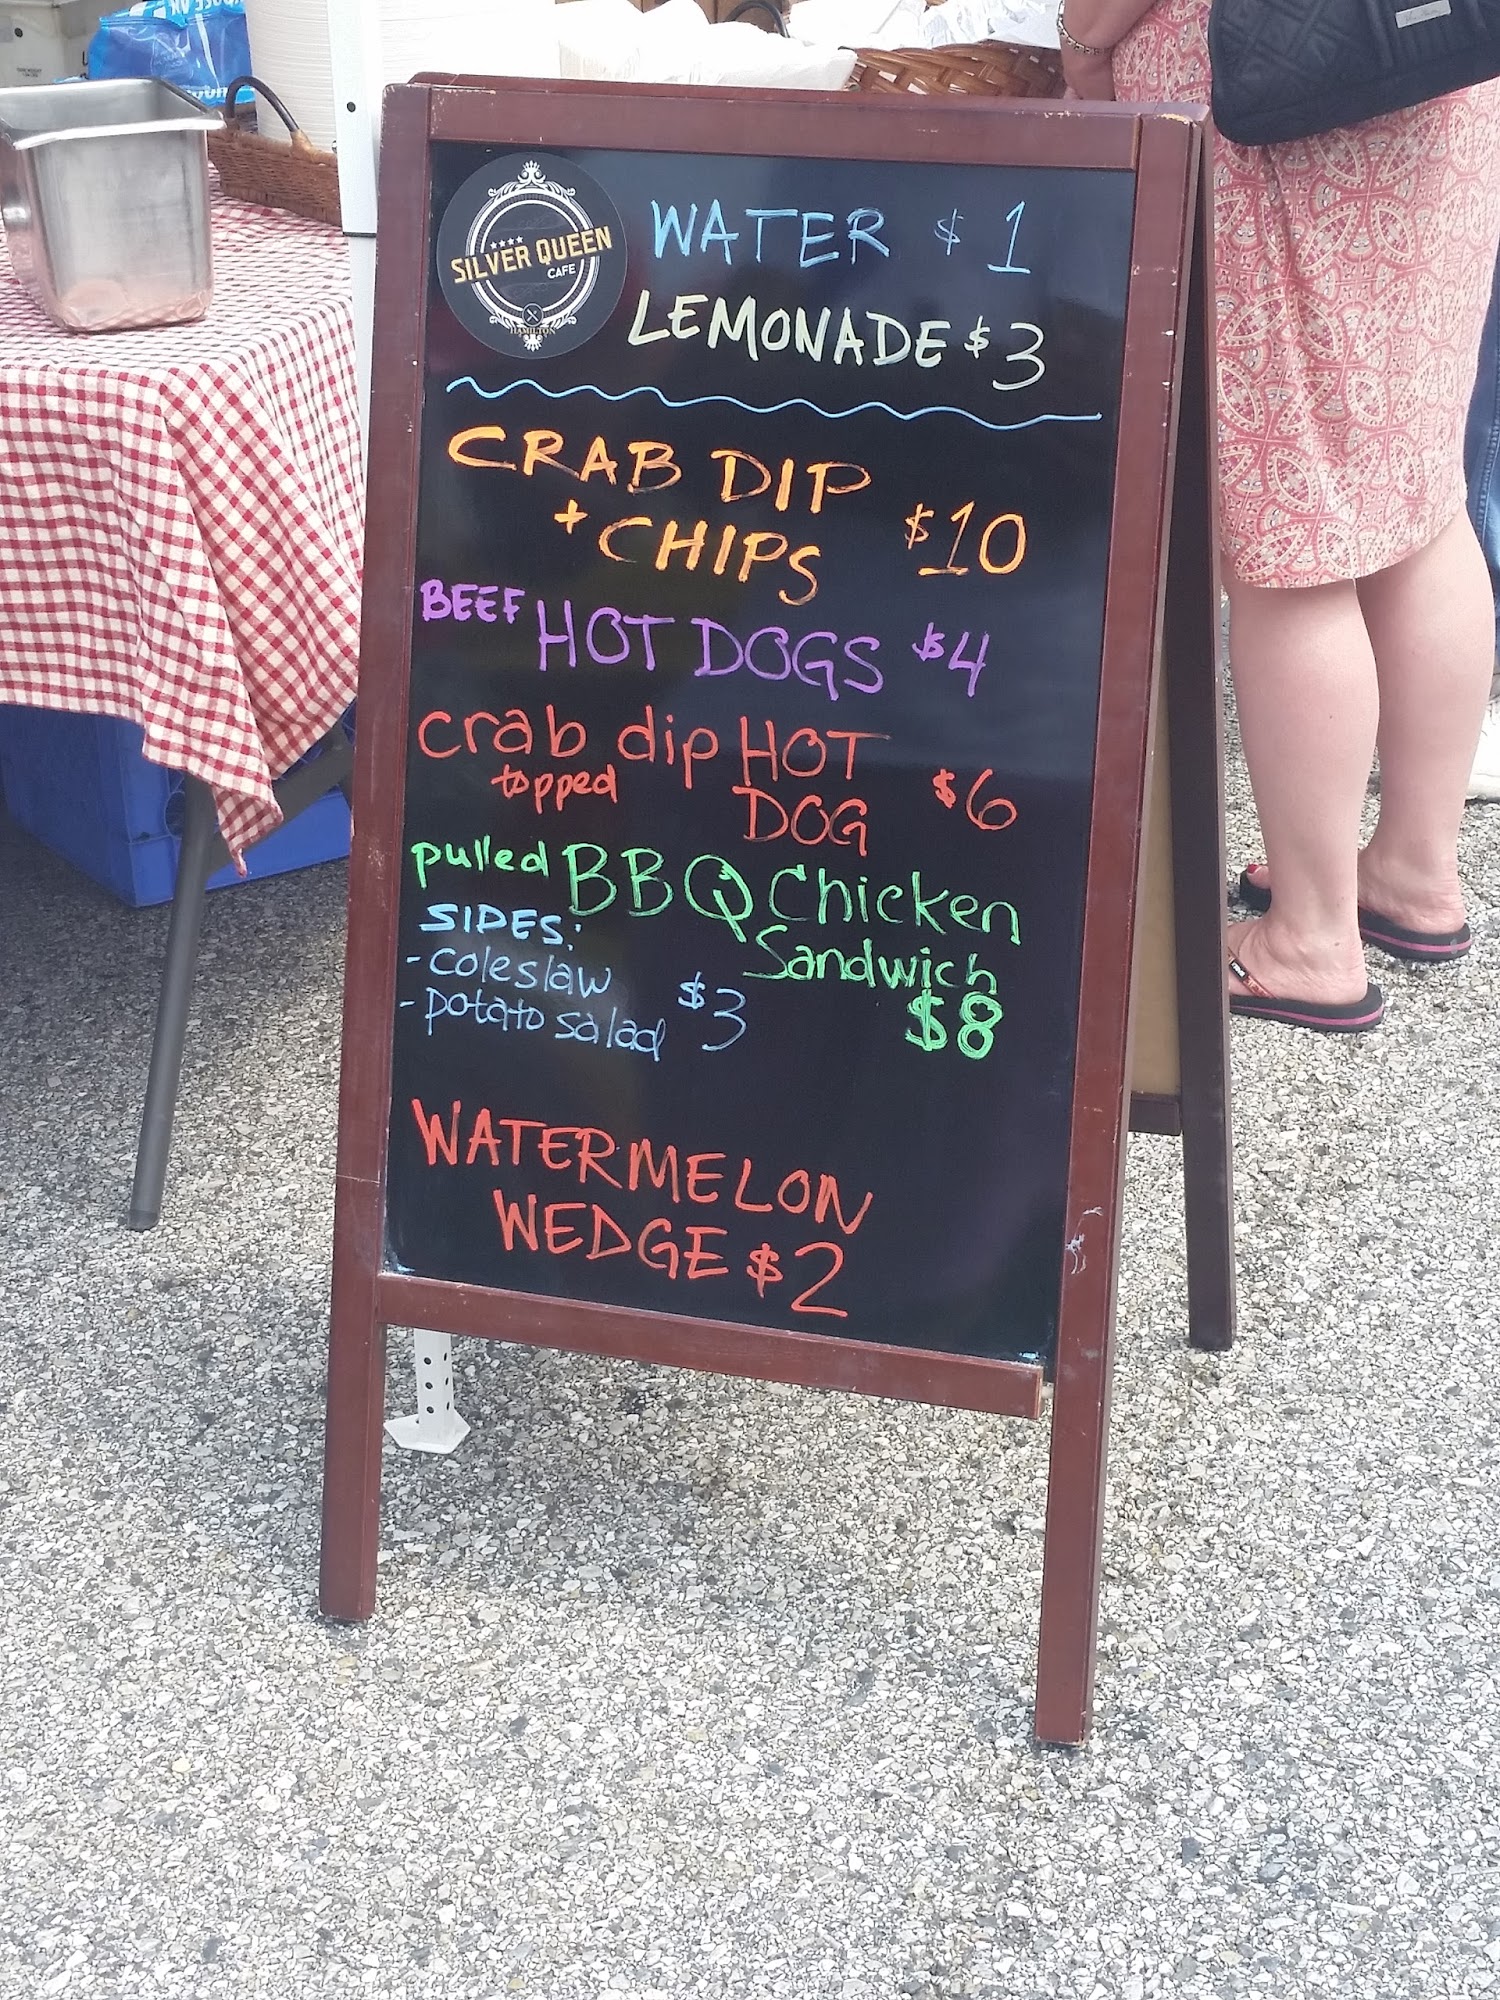 ★★★★
SILVER QUEEN
CAFE
HAMILTON
WATER $1
LEMONADE $3
CRAB DIP
+ CHIPS $10
BEEF HOT DOGS $4
crab dip HOT
topped DOG $6
pulled BBQ Chicken
Sandwich
$8
SIDES:
- coleslaw
- potato salad $3
WATERMELON
WEDGE $2